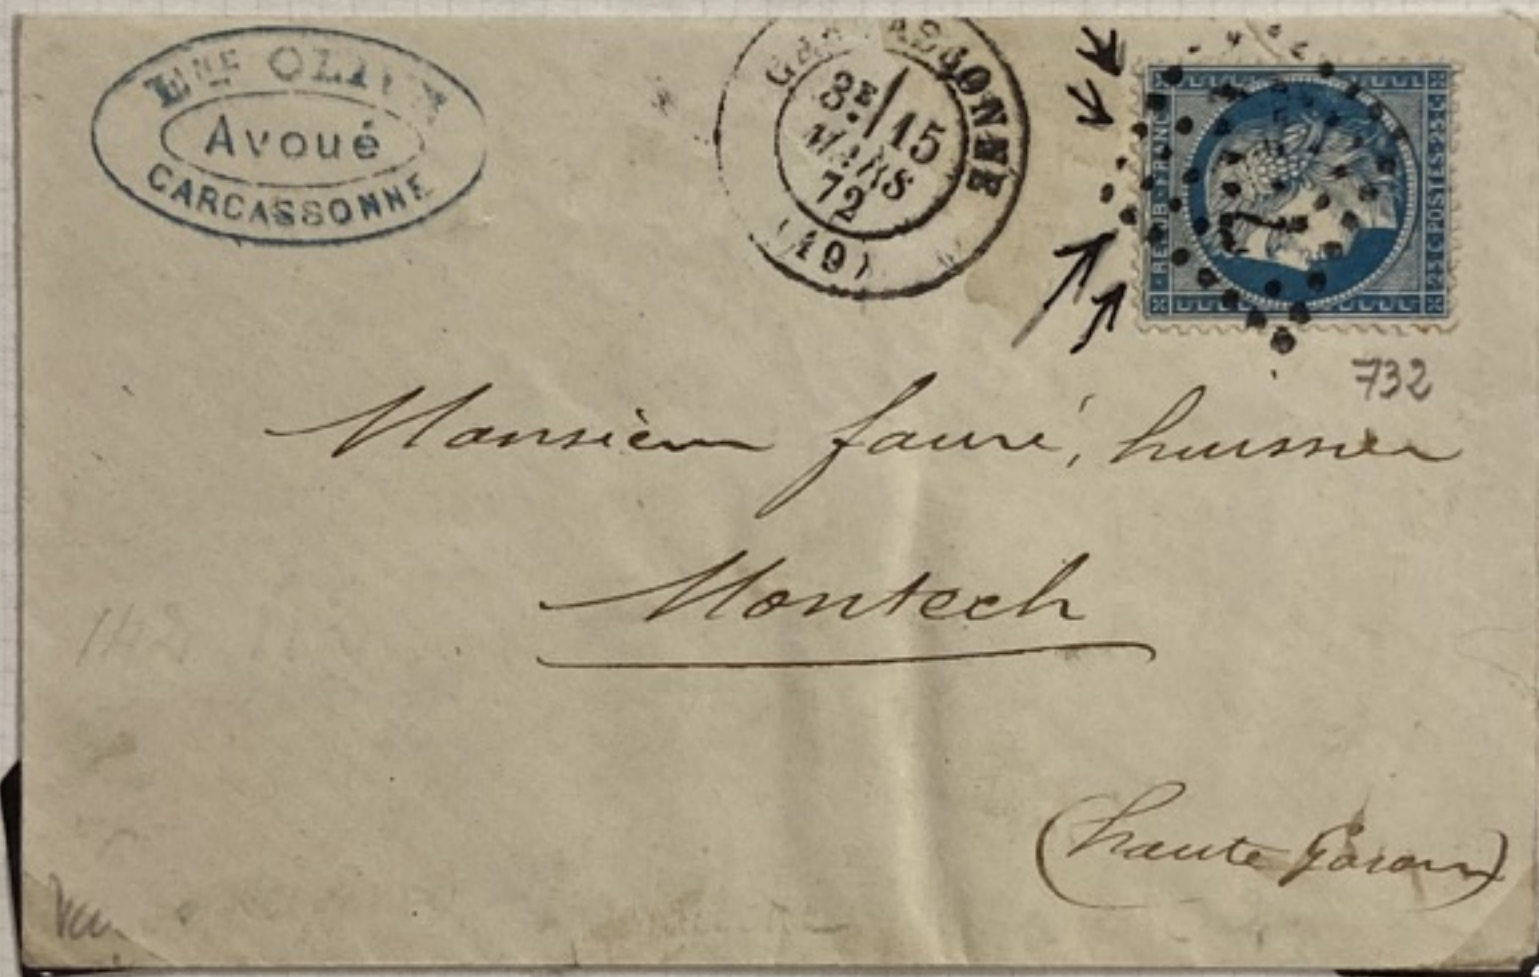 Avoué
CARCASSONNE
CARCASSONNE
3E/15
MARS
72
(10)
REPUB FRANC
25 C POSTES 25 C
732
Monsieur fauré, huissier
Montech
(haute Garonne)